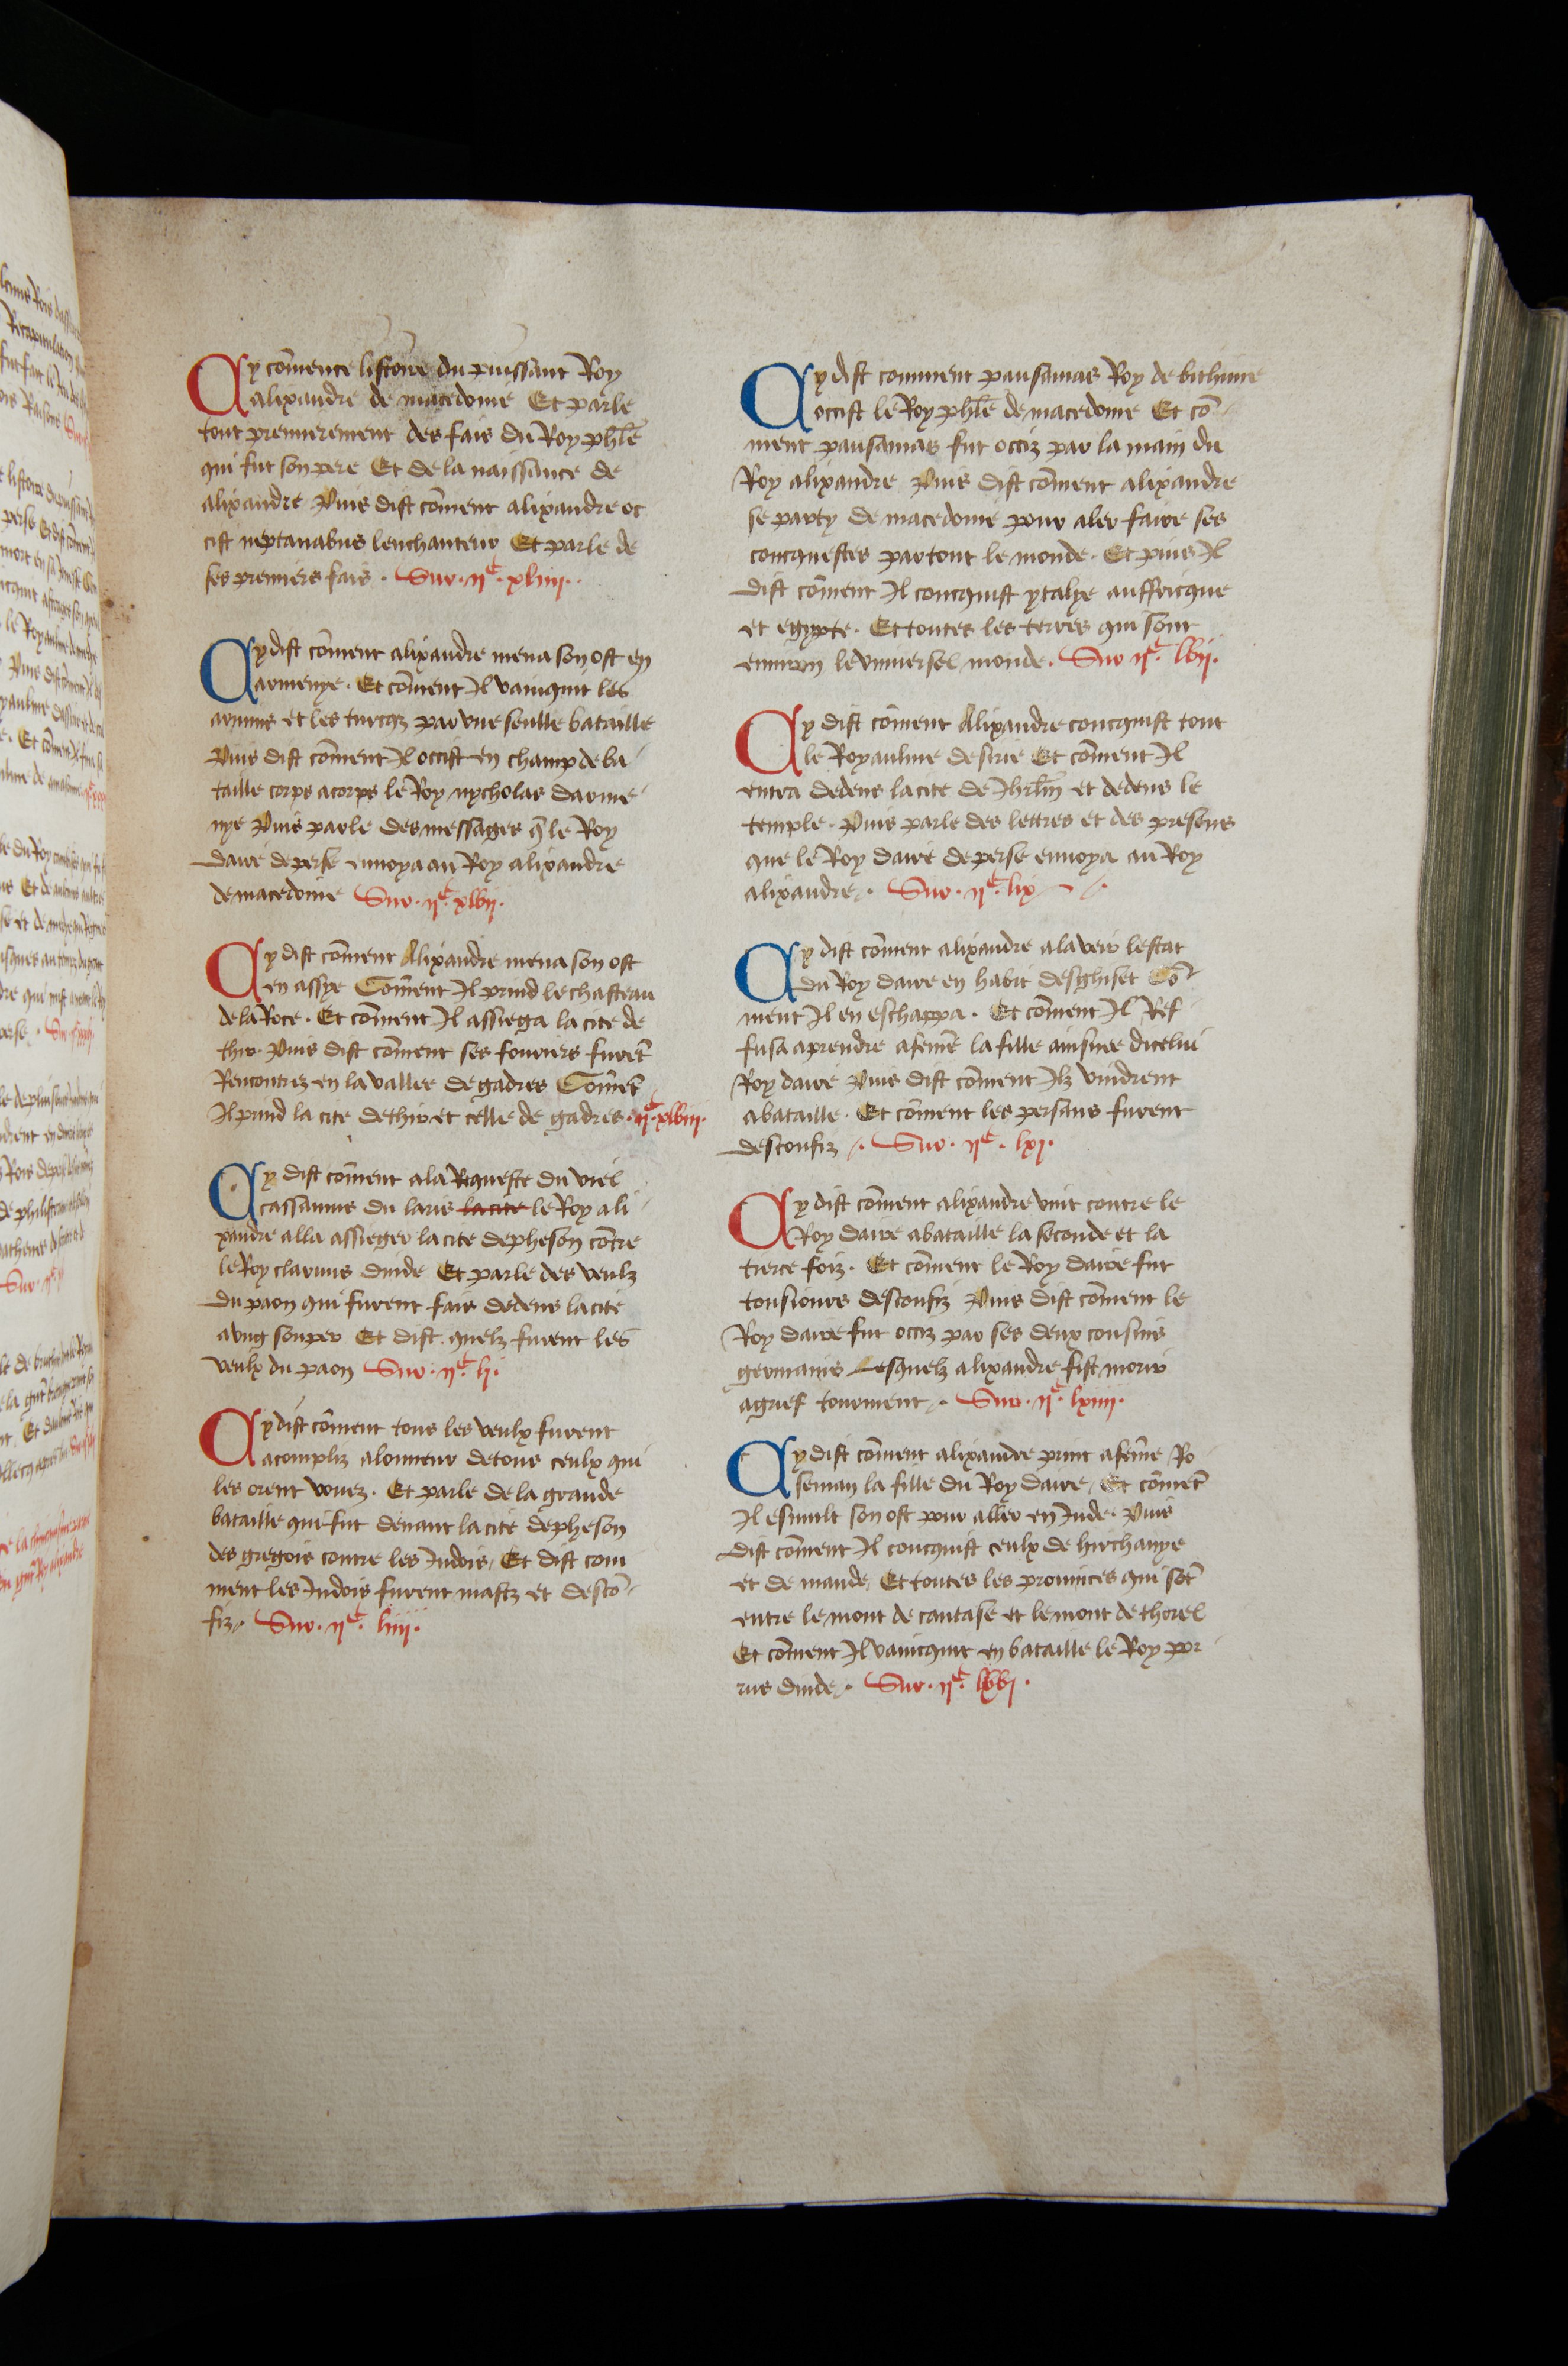 Cy cōmence listoire du puissant Roy
alixandre de macedoine Et parle
tout premierement des fais du Roy phl̄e
qui fut son pere Et de la naissance de
alixandre Puis dist cōment alixandre oc
cist neptanabus lenchanteur Et parle de
ses premiers fais . Sur . iiᶜ . xliiii .
Cy dist cōment alixandre mena son ost en
armenye . Et cōment Il vainquit les
armins et les turcqz par vne seulle bataille
Puis dist cōment Il occist en champ de ba
taille corps a corps le Roy nycholas darme
nye Puis parle des messages q̄ le Roy
daire de perse enuoya au Roy alixandre
de macedoine Sur . iiᶜ . xlvii .
Cy dist cōment Alixandre mena son ost
en assye Cōment Il prind le chasteau
de la Roce . Et cōment Il assiega la cite de
thir . Puis dist cōment ses fouriers furēt
Rencontrez en la vallee de gadres Cōmēt
Il prind la cite de thir et celle de gadres . iiᶜ . xlviii .
Cy dist cōment a la Requeste du viel
cassamus du laris lacite le Roy ali
xandre alla assieger la cite depheson cōtre
le Roy claruus dinde Et parle des veulz
du paon qui furent fais dedens la cite
a vng soupper Et dist . quelz furent les
veulx du paon Sur . iiᶜ . li .
Cy dist cōment tous les veulx furent
acompliz a lonneur de tous ceulx qui
les orent vouez . Et parle de la grande
bataille qui fut deuant la cite depheson
des gregois contre les Indois / Et dist com
ment les Indois furent mastz et descō
fiz . Sur . iiᶜ . liiii .
Cy dist comment pausanias Roy de bithinie
occist le Roy phl̄e de macedoine Et cō
ment pausanias fut occiz par la main du
Roy alixandre Puis dist cōment alixandre
se party de macedoine pour aler faire ses
concquestes par tout le monde . Et puis Il
dist cōment Il concquist ytalye auffricque
et egypte . Et toutes les terres qui sont
enuiron le vniuersel monde . Sur iiᶜ . lvii .
Cy dist cōment Alixandre concquist tout
le Royaulme de sirie Et cōment Il
entra dedens la cite de Ihrl̄m et dedens le
temple . Puis parle des lettres et des presens
que le Roy daire de perse enuoya au Roy
alixandre . Sur . iiᶜ . lix .
Cy dist cōment alixandre ala veir lestat
du Roy daire en habit desghiset Cō
ment Il en eschappa . Et cōment Il Ref
fusa a prendre a fēme la fille ainsnee dicelui
Roy daire Puis dist cōment Ilz vindrent
a bataille . Et cōment les persans furent
desconfiz . Sur . iiᶜ . lxi .
Cy dist cōment alixandre vint contre le
Roy daire a bataille la seconde et la
tierce foiz . Et cōment le Roy daire fut
tousiours desconfiz Puis dist cōment le
Roy daire fut occiz par ses deux cousins
germains Lesquelz alixandre fist morir
a grief tourment . Sur . iiᶜ . lxiiii .
Cy dist cōment alixandre print a fēme Ro
senian la fille du Roy daire / Et cōmēt
Il esmult son ost pour aller en Inde . Puis
dist cōment Il concquist ceulx de hirchanye
et de mande / Et toutes les prouinces qui sōt
entre le mont de caucase et le mont de thorel
Et cōment Il vaincquit en bataille le Roy por
rus dinde . Sur . iiᶜ . lxvi .